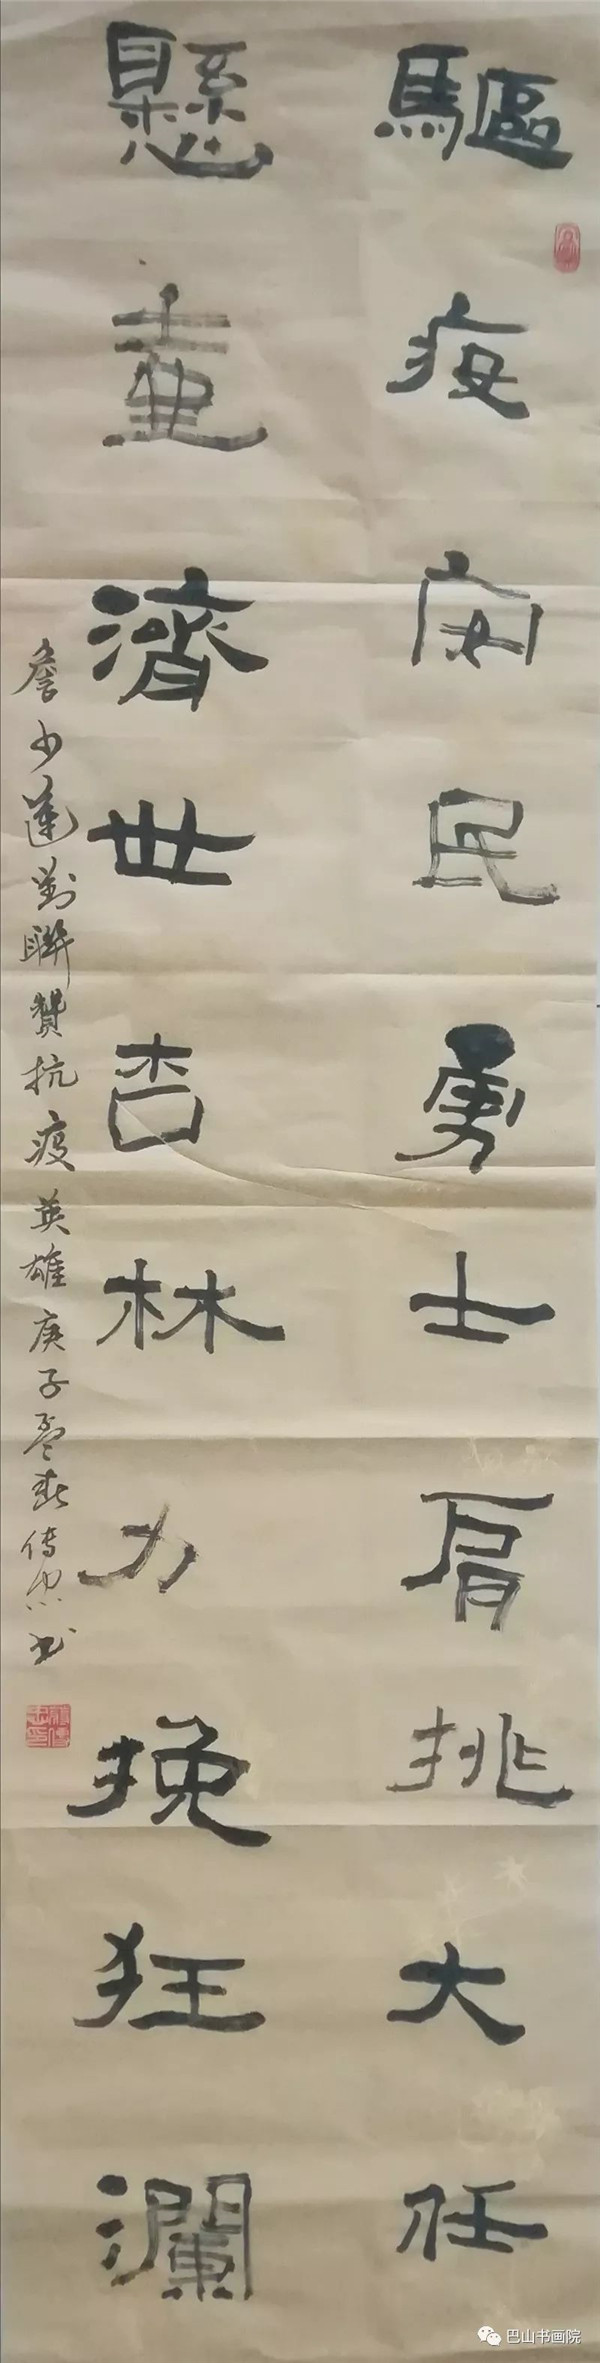 驅疫安民勇士肩挑大任
懸壺濟世杏林力挽狂瀾
詹少蓮對聯贊抗疫英雄庚子孟春傳忠書
巴山书画院